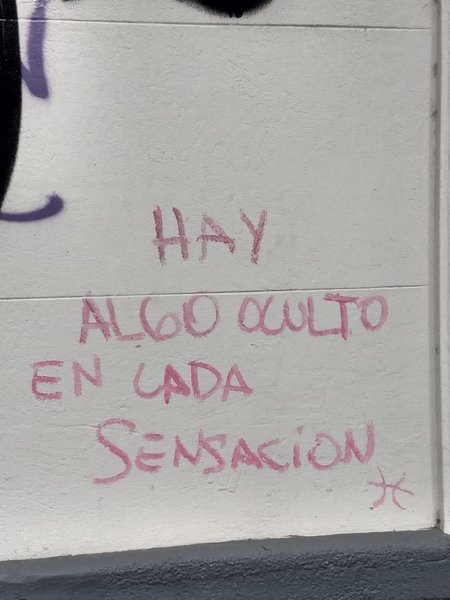 HAY
ALGO OCULTO
EN CADA
SENSACION